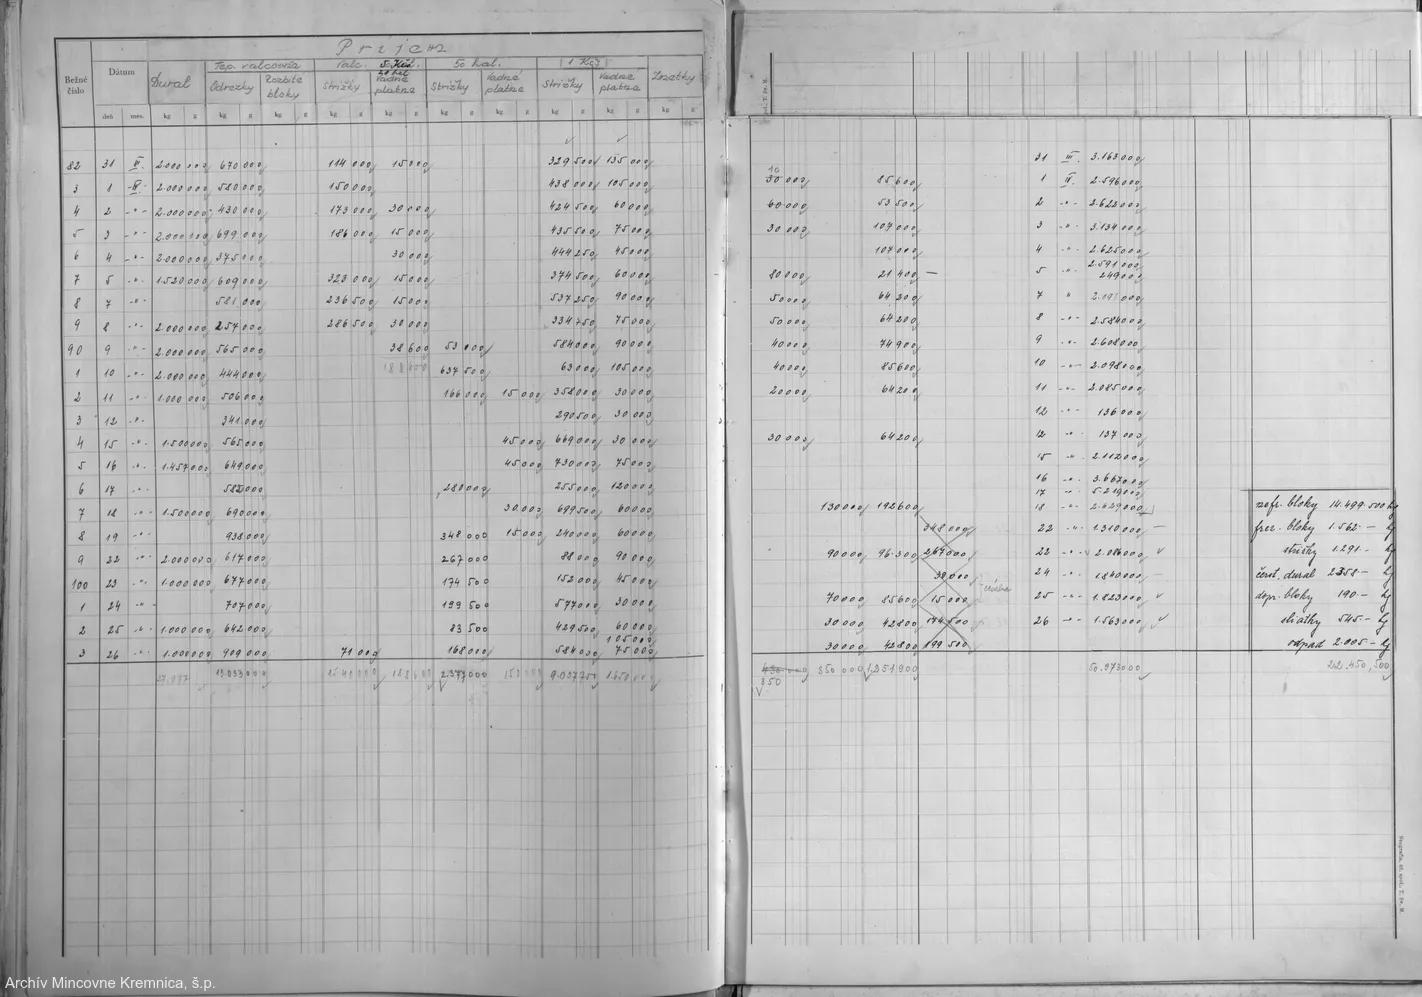 Príjem
Bežné číslo Dátum Dural Tep. valcovňa Valc. 5 Kčs. 50 hal. 1 Kčs Zmetky
Odrezky Rozbité bloky Strižky 20 hal Vadné platne Strižky Vadné platne Strižky Vadné platne
deň mes. kg g kg g kg g kg g kg g kg g kg g kg g kg g kg g
82 31 III. 2.000 000 670 000 114 000 15 000 329 500 135 000
3 1 IV. 2.000 000 580 000 150 000 438 000 105 000
4 2 -"- 2.000 000 430 000 173 000 30 000 424 500 60 000
5 3 -"- 2.000 000 699 000 186 000 15 000 435 500 75 000
6 4 -"- 2.000 000 375 000 30 000 444 250 45 000
7 5 -"- 1.520 000 609 000 323 000 15 000 374 500 60 000
8 7 -"- 581 000 236 500 15 000 537 250 90 000
9 8 -"- 2.000 000 254 000 286 500 30 000 334 750 75 000
90 9 -"- 2.000 000 565 000 38 600 53 000 584 000 90 000
1 10 -"- 2.000 000 444 000 637 500 63 000 105 000
2 11 -"- 1.000 000 506 000 166 000 15 000 358 000 30 000
3 12 -"- 341 000 290 500 30 000
4 15 -"- 1.500 000 565 000 45 000 669 000 30 000
5 16 -"- 1.457 000 649 000 45 000 730 000 75 000
6 17 -"- 582 000 280 000 255 000 120 000
7 18 -"- 1.500 000 690 000 30 000 699 500 60 000
8 19 -"- 938 000 348 000 15 000 240 000 60 000
9 22 -"- 2.000 000 617 000 267 000 88 000 90 000
100 23 -"- 1.000 000 677 000 174 500 152 000 45 000
1 24 -"- 707 000 199 500 577 000 30 000
2 25 -"- 1.000 000 642 000 83 500 429 500 60 000
105 000
3 26 -"- 1.000 000 909 000 71 000 168 000 584 000 75 000
2.377 000
31 III. 3.163 000
10
30 000 85 600 1 IV. 2.596 000
60 000 53 500 2 -"- 2.623 000
30 000 107 000 3 -"- 3.134 000
107 000 4 -"- 2.625 000
80 000 21 400 — 5 -"- 2.591 000
249 000
50 000 64 200 7 "
50 000 64 200 8 -"- 2.584 000
40 000 74 900 9 -"- 2.608 000
40 000 85 600 10 -"- 2.098 000
20 000 64 200 11 -"- 2.085 000
12 -"- 136 000
30 000 64 200 12 -"- 137 000
15 -"- 2.112 000
16 -"- 3.667 000
17 -"- 5.219 000
130 000 192 600 18 -"- 2.429 000
348 000 22 -"- 1.310 000 —
90 000 96 300 267 000 22 -"- 2.086 000
38 000 24 -"- 1.840 000 —
70 000 85 600 15 000 25 -"- 1.823 000
30 000 42 800 174 500 26 -"- 1.563 000
30 000 42 800 199 500
350 350 000 1,251.900 50.973 000 22.450,500
nefr. bloky 14.499.500 kg
frez. bloky 1.562 — kg
strižky 1.291 — kg
čerst. dural 2358 — kg
dopr. bloky 190 — kg
545 — kg
odpad 2.005 — kg
Archív Mincovne Kremnica, š.p.